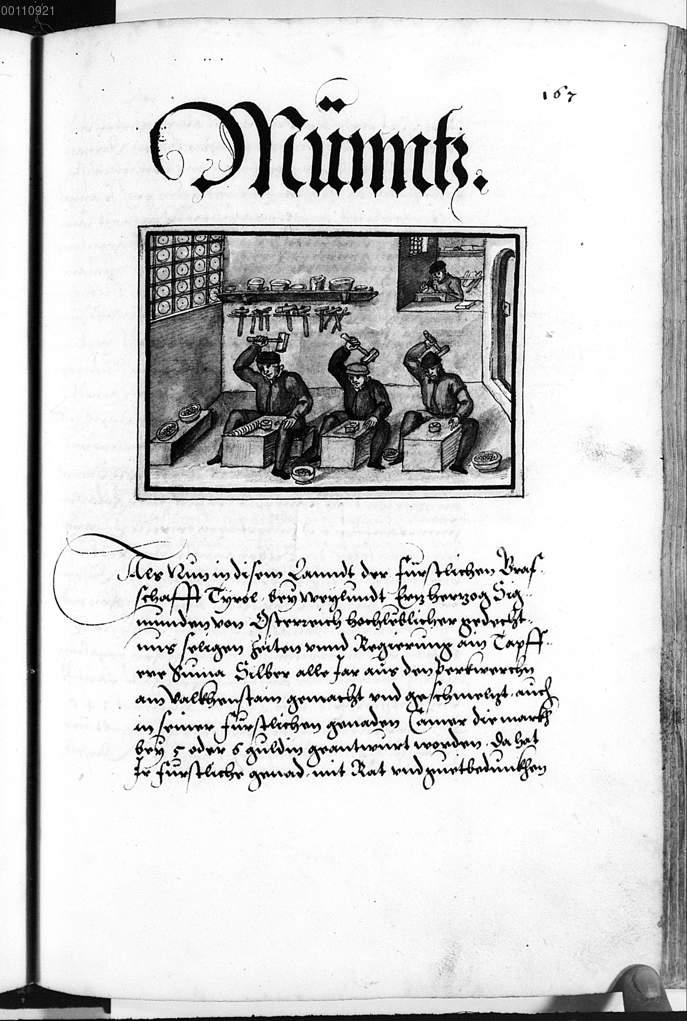 00110921
167
Münntz.
Als Nun in disem Lanndt der fürstlichen Graf-
schafft Tyrol, bey weylundt Ertzhertzog Sig-
munden von Österreich hochlöblicher gedecht-
nus seligen zeiten vnnd Regierung ain Tapff-
ere Suma Silber alle Jar aus den Perkwerchn
am Valkhenstain gemacht vnd geschmeltzt, auch
in seiner fürstlichen genaden Camer die markh
bey 5 oder 6 guldin geantwurt worden, da hat
Ir fürstliche genad, mit Rat vnd guetbedunkhen